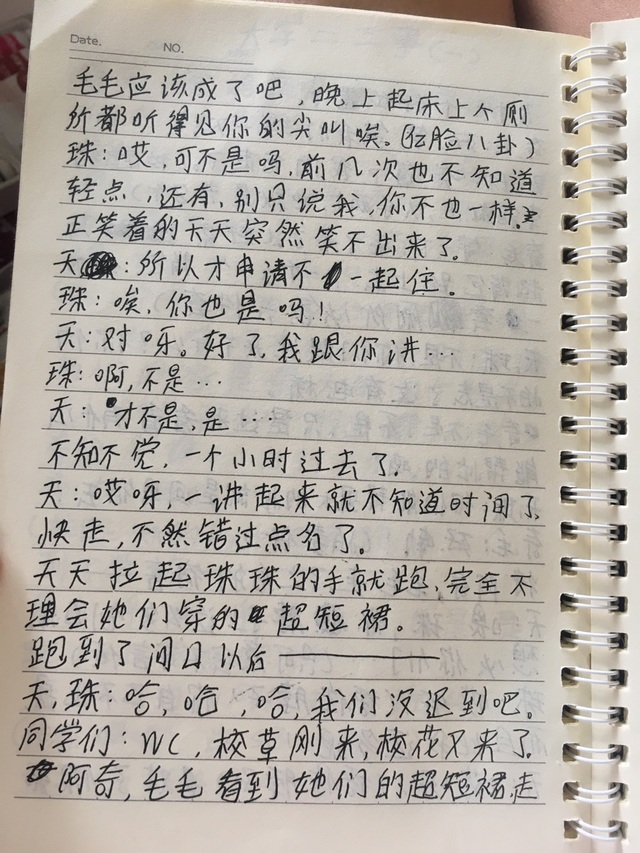 Date.
NO.
毛毛应该成了吧,晚上起床上个厕
所都听得见你的尖叫唉。(红脸八卦)
珠:哎,可不是吗,前几次也不知道
轻点,还有,别只说我,你不也一样。
正笑着的天天突然笑不出来了。
天:所以才申请不一起住。
珠:唉,你也是吗!
天:对呀。好了,我跟你讲…
珠:啊,不是…
天:才不是,是…
不知不觉,一个小时过去了。
天:哎呀,一讲起来就不知道时间了
快走,不然错过点名了。
天天拉起珠珠的手就跑,完全不
理会她们穿的超短裙。
跑到了门口以后
天,珠:哈,哈,哈,我们没迟到吧。
同学们:WC,校草刚来,校花又来了。
阿奇,毛毛看到她们的超短裙,走